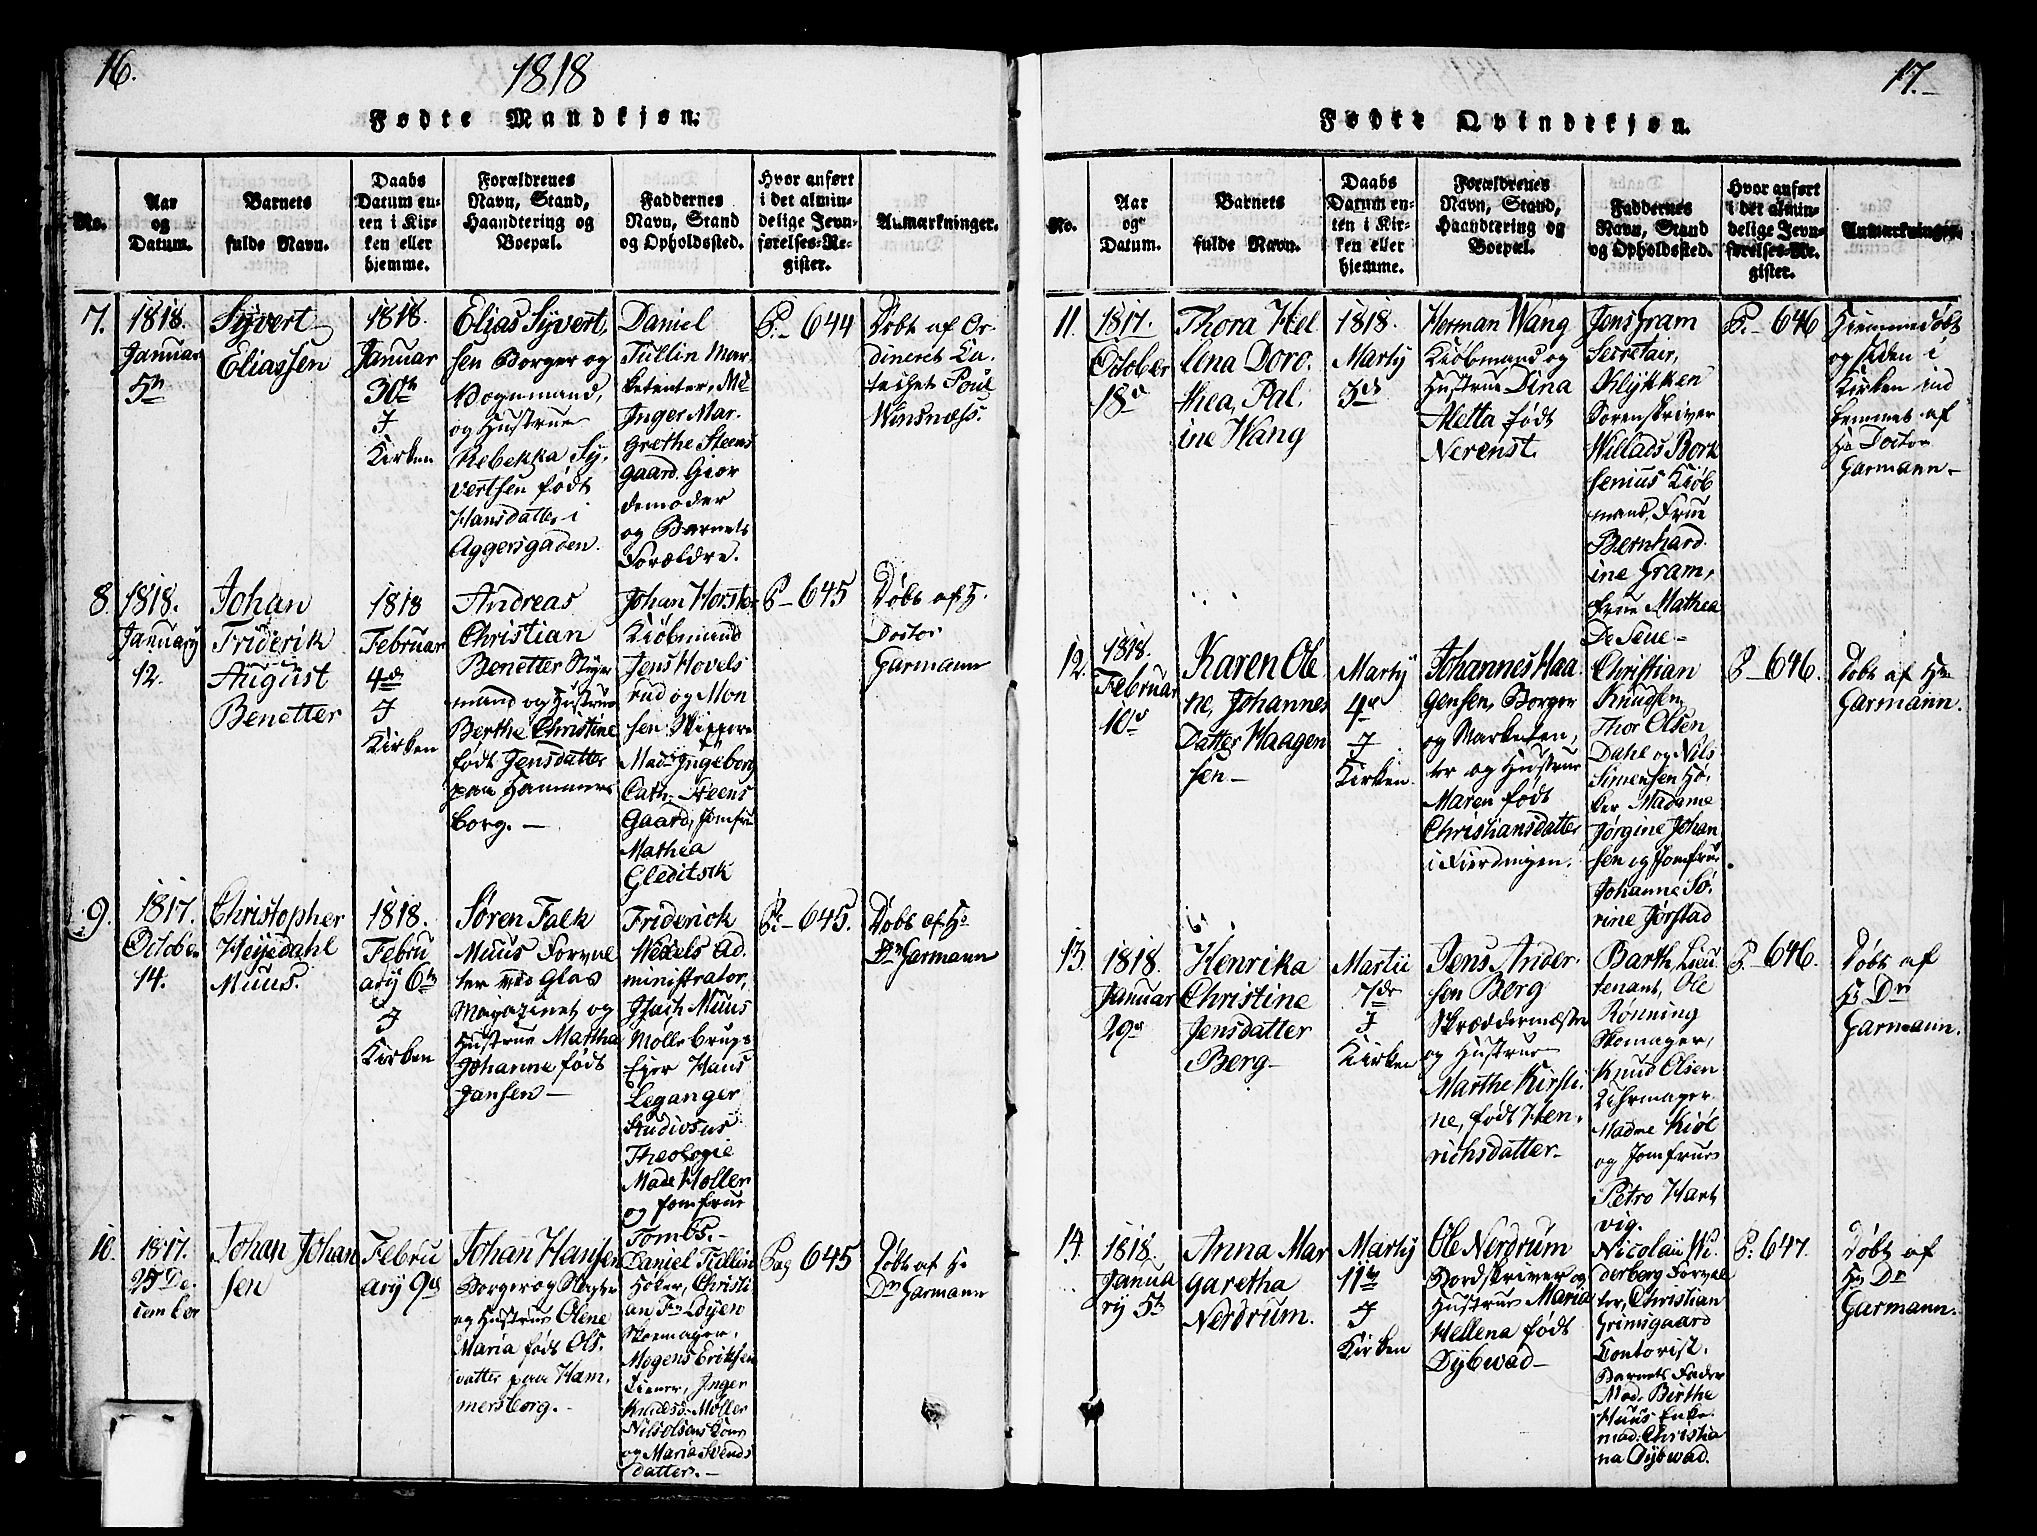 16.
1818
Fødte Mandkjøn.
No.
Aar
og
Datum.
Barnets
fulde Navn.
Daabs
Datum en-
ten i Kir-
ken eller
hjemme.
Forældrenes
Navn, Stand,
Haandtering og
Boepæl.
Faddernes
Navn, Stand
og Opholdssted.
Hvor anført
i det almin-
delige Jevn-
førelses-Re-
gister.
Anmærkninger.
7.
1818.
Januar
5te
Syvert
Eliassen
1818.
Januar
30te
I
Kirken
Elias Syvert
sen Borger og
Vognmand,
og Hustrue
Rebekka Sy,
vertsen født
Hansdatter i
Aggersgaden.
Daniel
Tullin Mar
ketenter, Me
Inger Mar.
grethe Steens
gaard. Gior
demoder
og Barnets
Forældre.
P.- 644
Døbt af Or-
dineret Ca-
techet Poul
Winsnæss.
8.
1818.
January
12.
Johan
Friderik
August
Benetter
1818
Februar
4de
I
Kirken
Andreas
Christian
Benetter
mand og Hustrue
Berthe Christine
født Jensdatter
paa Hammers
borg. -
Johan Horster
Kiøbmand
Jens Hovels
rud og Mon
sen Skippere
Made Ingeborg
Cath. Steens
Gaard, Jomfru
Mathea
Gleditsch
P- 645
Døbt af H.
Doctor
Garmann
9.
1817.
October
14.
Christopher
Heyerdahl
Muus.
1818.
Febru
ary 6te
I
Kirken
Søren Falk
Muus Forval
ter ved Glas
Magazinet og
Hustrue Martha
Johanne født
Jansen -
Friderich
Wessels Ad.
ministrator,
Isach Muus
Mølle brugs
Ejer Hans
Leganger
Studiosus
Theologie
Made Møller
og Jomfrue
Tombs.-
P.- 645.
Døbt af Hr
Dr Garmann
10.
1817.
25 De
cember
Johan Johan
sen
Febru
ary 9de
Johan Hansen
Borger og
og Hustrue Olene
Maria født Ols.
datter paa Ham,
mersborg.-
Daniel Tullin
Høker, Christi
an Fr Løyen
Skomager,
Mogens Eriksen
Tiener, Inger
Møller
Nils Olsens Kone
og Maria Svends
datter. -
Pag 645
Døbt af Hr
Dr Garmann
17.
Fødte Qvindekjøn.
No.
Aar
og
Datum.
Barnets
fulde Navn.
Daabs
Datum en-
ten i Kir-
ken eller
hjemme.
Forældrenes
Navn, Stand,
Haandtering og
Boepæl.
Faddernes
Navn, Stand
og Opholdssted.
Hvor anført
i det almin-
delige Jevn-
førelses-Re-
gister.
Anmærkninger.
11.
1817.
October
18de
Thora Hel
lena Doro.
thea, Pal.
ine Wang
1818.
Marty
3die
Herman Wang
Kiøbmand og
Hustrue Dina
Aletta født
Nerenst.
Jens Gram
Secretair,
Klykken
Sorenskriver
Willads Bork
senius Kiøb
mand, Frue
Bernhard.
ine Gram,
Frue Mathea
De Seue -
P.- 646
Hiemmedøbt
og siden i
Kirken ind
kommet af
Hr Doctor
Garmann -
12.
1818.
Februar
10de
Karen Ole
ne, Johannes
Datter Haagen
sen -
Marty
4de
I
Kirken.
Johannes Haa
gensen, Borger
og Marketen,
ter og Hustrue
Maren født
Christiansdatter
i Fierdingen.
Christian
Knudsen
Thor Olsen
Dahl og Nils
Simensen Hø,
ker Madame
Jørgine Johan
sen og Jomfrue
Johanne Sø,
rine Jørstad
P- 646.
Døbt af Hr
Garmann.
13.
1818.
Januar
29de
Henrika
Christine
Jensdatter
Berg -
Martii
7de
I
Kirken
Jens Ander.
sen Berg
Skræddermæster
og Hustrue
Marthe Kirsti.
ne, født Hen.
richsdatter -
Barth, Lieu
tenant, Ole
Rønning
Skomager,
Knud Olsen
Uhrmager.
Madme Kiøl
og Jomfrue
Petro Hart
vig.
P.- 646.
Døbt af
Hr Dr
Garmann.
14.
1818.
Janua
ry 5te
Anna Mar
garetha
Nerdrum.
Marty
11te
I
Kirken
Ole Nerdrum
Hordskriver og
Hustrue Maria
Hellena født
Dybwad -
Nicolay Wi
derberg Forval
ter, Christian
Grimsgaard
Contorist,
Barnets Fader
Mad. Birthe
Huus Enke
mad. Christia
na Dybwad.
P. 647.
Døbt af
Hr Dr
Garmann.